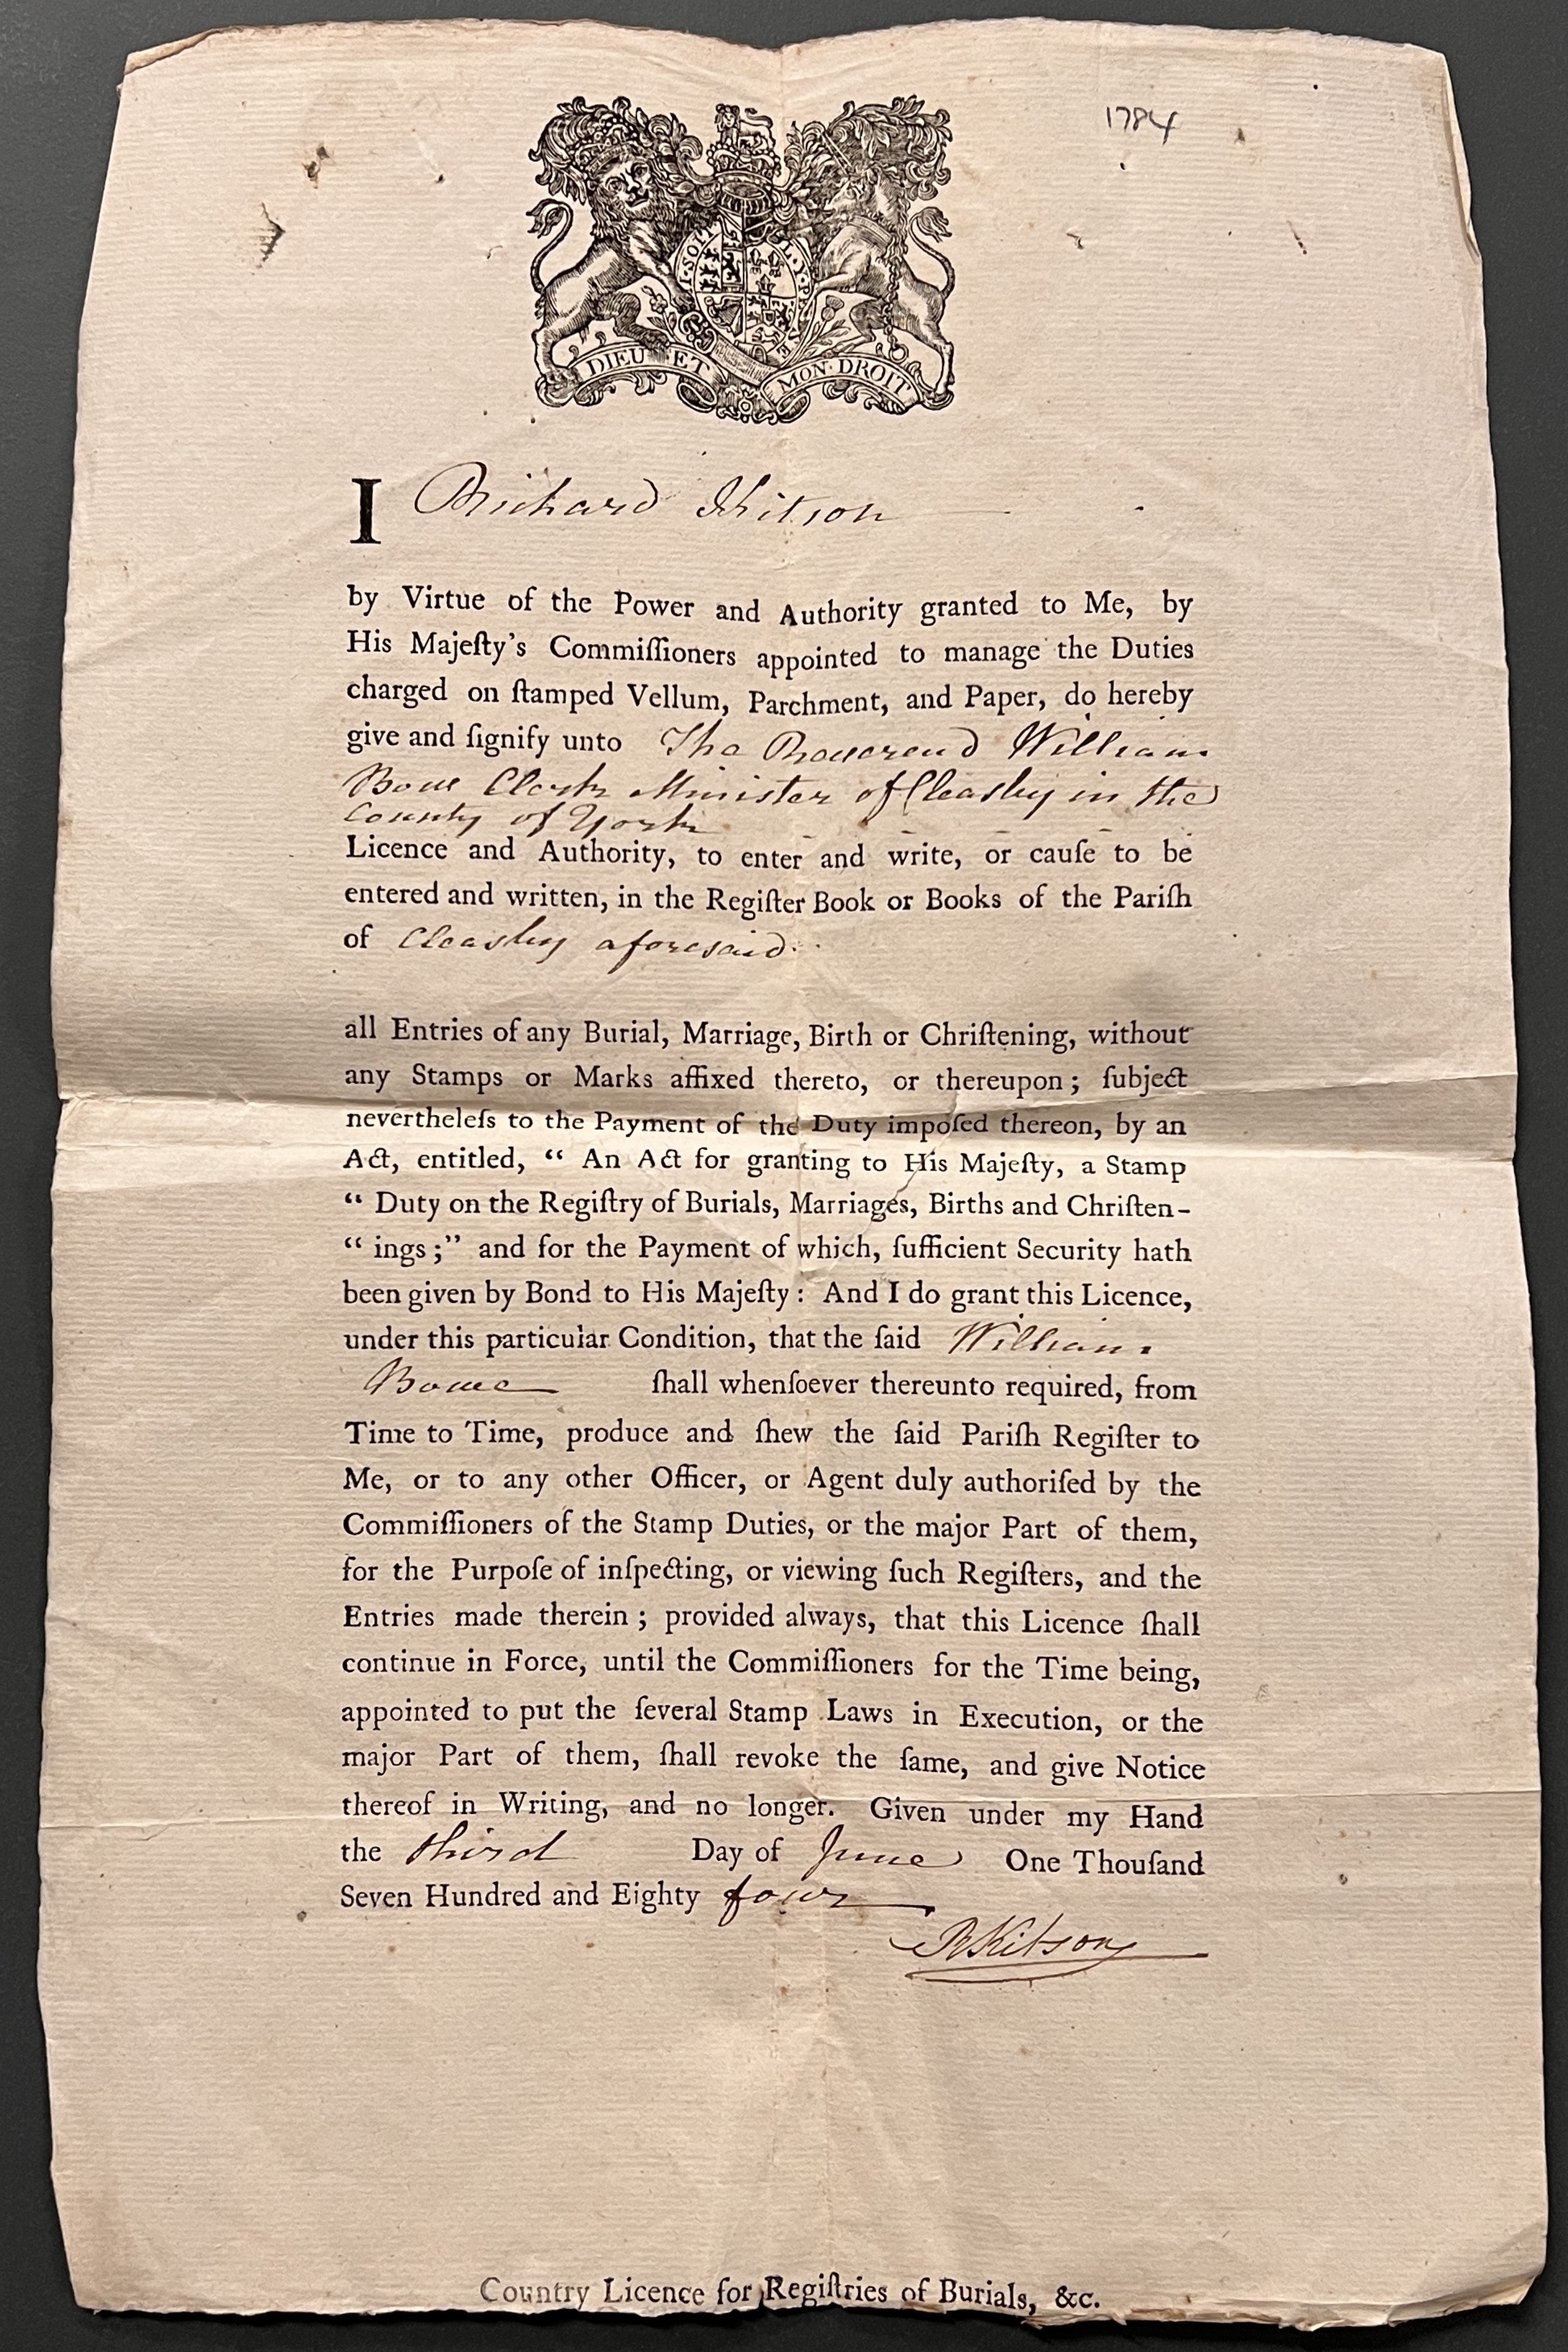 1784
HONI·SOIT
L·Y·PENSE
DIEU ET MON·DROIT
I Richard Kitson
by Virtue of the Power and Authority granted to Me, by
His Majeſty's Commiſſioners appointed to manage the Duties
charged on ſtamped Vellum, Parchment, and Paper, do hereby
give and ſignify unto The Reverend William
Bowe Clerk Minister of Cleasby in the
County of York
Licence and Authority, to enter and write, or cauſe to be
entered and written, in the Regiſter Book or Books of the Pariſh
of Cleasby aforesaid
all Entries of any Burial, Marriage, Birth or Chriſtening, without
any Stamps or Marks affixed thereto, or thereupon; ſubject
nevertheleſs to the Payment of the Duty impoſed thereon, by an
Act, entitled, “ An Act for granting to His Majeſty, a Stamp
“ Duty on the Regiſtry of Burials, Marriages, Births and Chriſten-
“ ings;” and for the Payment of which, ſufficient Security hath
been given by Bond to His Majeſty: And I do grant this Licence,
under this particular Condition, that the ſaid William
Bowe ſhall whenſoever thereunto required, from
Time to Time, produce and ſhew the ſaid Pariſh Regiſter to
Me, or to any other Officer, or Agent duly authoriſed by the
Commiſſioners of the Stamp Duties, or the major Part of them,
for the Purpoſe of inſpecting, or viewing ſuch Regiſters, and the
Entries made therein; provided always, that this Licence ſhall
continue in Force, until the Commiſſioners for the Time being,
appointed to put the ſeveral Stamp Laws in Execution, or the
major Part of them, ſhall revoke the ſame, and give Notice
thereof in Writing, and no longer. Given under my Hand
the third Day of June One Thouſand
Seven Hundred and Eighty four
R Kitson
Country Licence for Regiſtries of Burials, &c.